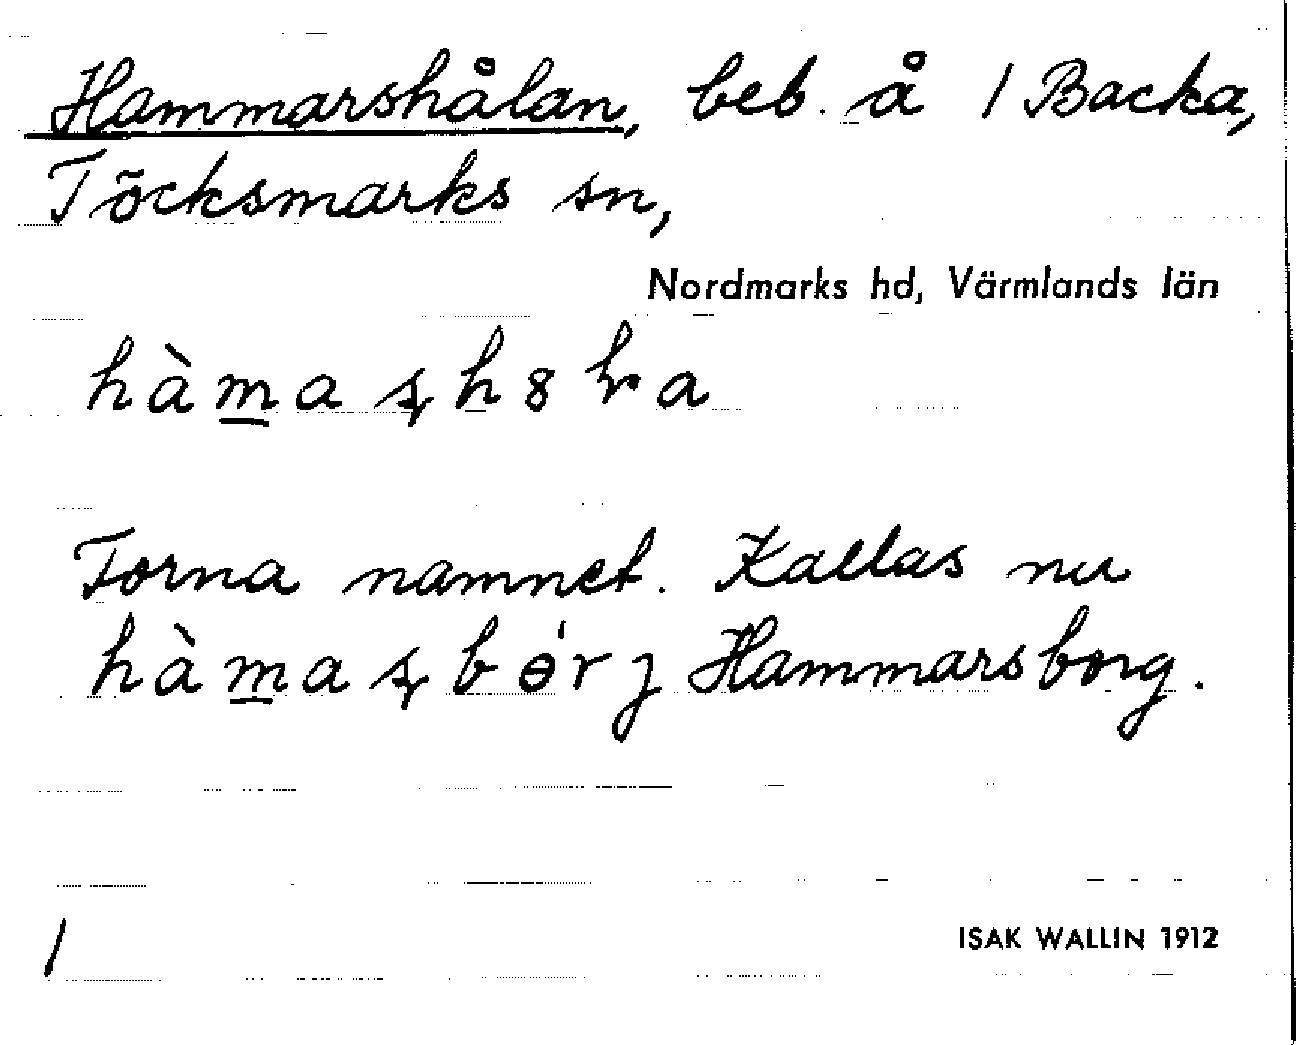 Hammarshålan, beb. å 1 Backa,
Töcksmarks sn,
Nordmarks hd, Värmlands län
hàm̲aʂh8ɽa
Forna namnet. Kallas nu
hàm̲aʂbɵ́rj Hammarsborg.
1
ISAK WALLIN 1912